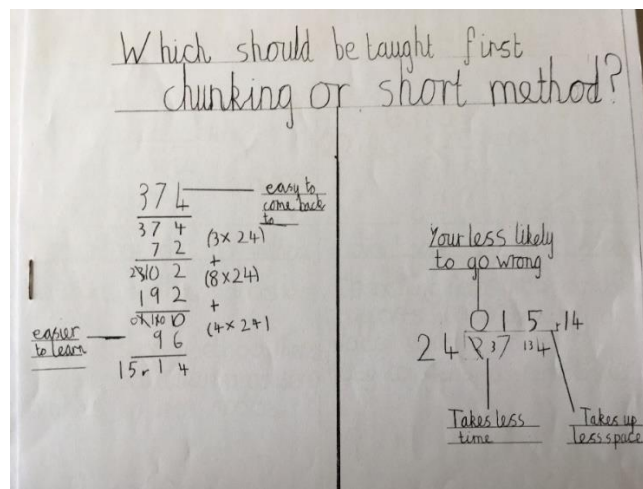 Which should be taught first
chunking or short method?
374
easy to
come back
to
374
72 (3x24)
+
2 3 10 2 (8x24)
192 +
110 (4x24)
easier
to learn
96
15 r 14
Your less likely
to go wrong
0 1 5 r 14
24 3 37 134
Takes less
time
Takes up
less space